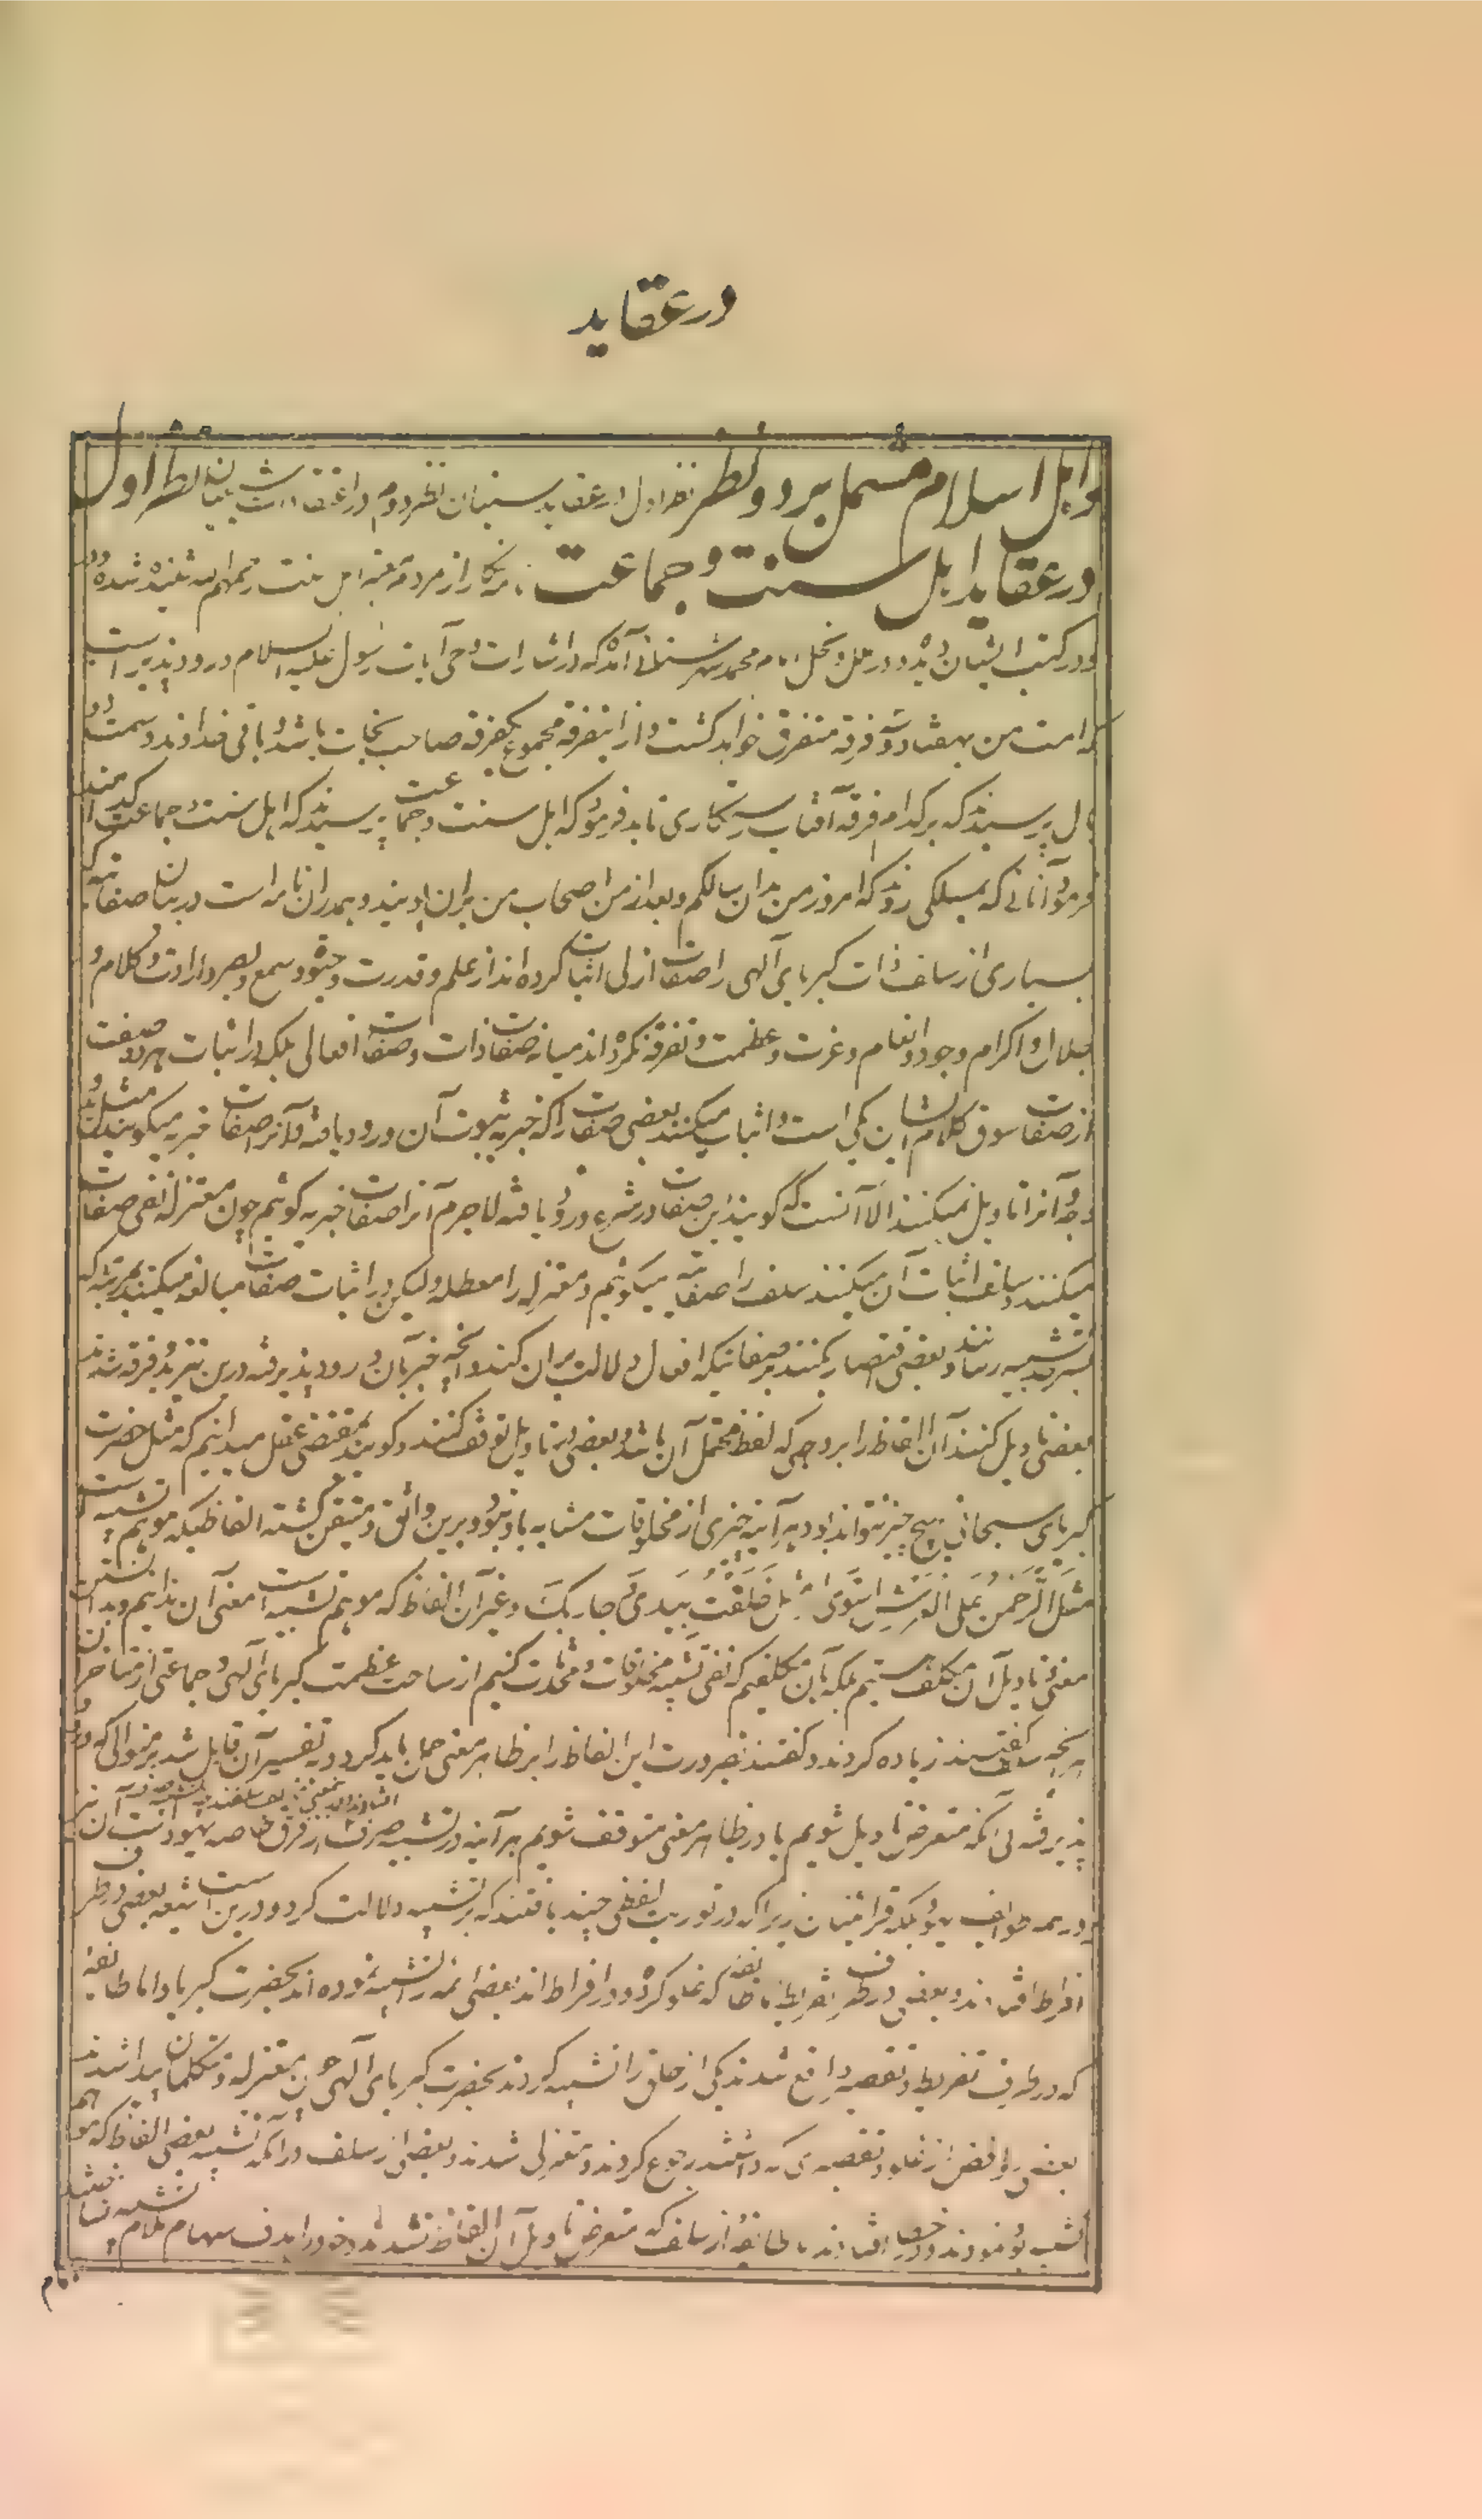 در عقاید
و اهل اسلام مشتمل بر دو نظر نظر اول در عقاید سنیان نظر دوم در اعتقادات شیعیان نظر اول
در عقاید اهل سنت و جماعت نامه نگار از مردم معتبر اهل سنت رحمهم الله شنیده شده و
و در کتب ایشان دیده و در ملل و نحل امام محمد شهرستانی آمده که در اشارات وحی آیات رسول علیه السلام ورود پذیر است
که امت من بهفتاد و سه فرقه متفرق خواهد گشت و از این فرقه مجموع یکفرقه صاحب نجات باشد و باقی
پرسیدند که بر کدام فرقه آفتاب رستگاری تابد فرمود که اهل سنت و جماعت پرسیدند که اهل سنت و جماعت کدامند
فرمود آنانی که بمسلکی روند که امروز من بدان سالکم و بعد از من اصحاب من بران در بیان صفاتیه
بسیاری از سلف ذات کبریای آلهی را صفات ازلی اثبات کرده اند از علم و قدرت و حیوة و سمع و بصر و ارادت و کلام و
جلال و اکرام وجود و انعام و عزت و عظمت و تفرقه نکرده اند میانه صفات ذات و صفات افعالی بلکه در اثبات هر دو صفت
از صفات سوق کلام ایشان یکی است و اثبات میکنند بعضی صفات را که خبر به ثبوت آن ورود یافته و آنرا صفات خبریه میگویند مثل ید
و وجه و آنرا تاویل نمیکنند الا آنست که گویند این صفات در شرع ورود یافته لاجرم آنرا صفات خبریه گوئیم چون معتزله نفی صفات
میکنند و سلف اثبات آن میکنند سلف را صفاتیه میگوئیم و معتزله را معطله و لیکن در اثبات صفات مبالغه میکنند بمرتبه که
بسرحد تشبیه رسانند و بعضی اقتصار کنند بر صفاتیکه افعال دلالت بران کند و آنچه خبر بآن ورود پذیرفته درین نیز دو فرقه شدند
بعضی تاویل کنند آن الفاظ را بر وجهی که لفظ محتمل آن باشد و بعضی در تاویل توقف کنند و گویند بمقتضی عقل میدانیم که مثل حضرت
کبریای سبحانی هیچ چیز نتواند بود و هر آینه چیزی از مخلوقات مشابه باو نبود و برین واثق و متیقن گشته الفاظیکه موهم تشبیه است
مثل الرَّحْمٰنُ عَلَی الْعَرْشِ اسْتَوٰی و مثل خَلَقْتُ بِیَدَیَّ و جاء ربک و غیر آن الفاظ که موهم تشبیه است معنی آن ندانیم و بدانستن
معنی و تاویل آن مکلف نیستیم بلکه بآن مکلفیم که نفی تشبیه مخلوقات و محدثات کنیم از ساحت عظمت کبریای آلهی و جماعتی از متاخران
بر آنچه سلف گفتند زیاده کردند و گفتند بضرورت این الفاظ را بر ظاهر معنی حمل باید کرد و به تفسیر آن قایل شد بر منوالی که ورود
پذیرفته بی آنکه متعرض تاویل شویم یا در ظاهر معنی متوقف شویم هر آینه در تشبیه صرف
در همه طوایف یهود بلکه قرائیان زیرا که در توریت لفظی چند یافتند که بر تشبیه دلالت کردو درین است شیعه بعضی در طرف
افراط افتادند و بعضی در طرف تفریط طائفه که غلو کرده و در افراط اند بعضی ائمه را تشبیه نموده اند بحضرت کبریا و اما طائفه
که در طرف تفریط و تقصیر واقع شدند یکی از خلق را تشبیه کردند بحضرت کبریای آلهی چون معتزله و متکلمان پیدا شدند
بعضی روافض از غلو و تقصیری که داشتند رجوع کردند و معتزلی شدند و بعضی از سلف در آمد تشبیه بعضی الفاظ که موهم
تشبیه بود نمودند و در افتادند و طائفه از سلف که متعرض تاویل آن الفاظ نشدند و خود را هدف سهام ملام تشبیه نساختند
امام